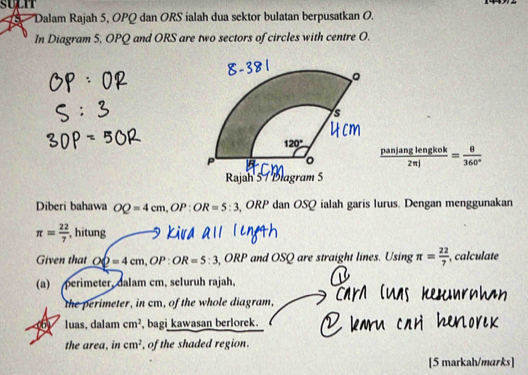 SULIT
5 Dalam Rajah 5, OPQ dan ORS ialah dua sektor bulatan berpusatkan O.
In Diagram 5, OPQ and ORS are two sectors of circles with centre O.
OP : OR
5 : 3
3OP = 5OR
8-381
Q
S
4cm
120°
P
R
O
4cm
Rajah 5 / Diagram 5
panjang lengkok / 2πj = θ / 360°
Diberi bahawa OQ = 4 cm, OP : OR = 5 : 3, ORP dan OSQ ialah garis lurus. Dengan menggunakan
π = 22/7, hitung
kira all length
Given that OQ = 4 cm, OP : OR = 5 : 3, ORP and OSQ are straight lines. Using π = 22/7, calculate
(a) perimeter, dalam cm, seluruh rajah,
the perimeter, in cm, of the whole diagram,
① cari luas keseluruhan
(b) luas, dalam cm², bagi kawasan berlorek.
② baru cari berlorek
the area, in cm², of the shaded region.
[5 markah/marks]